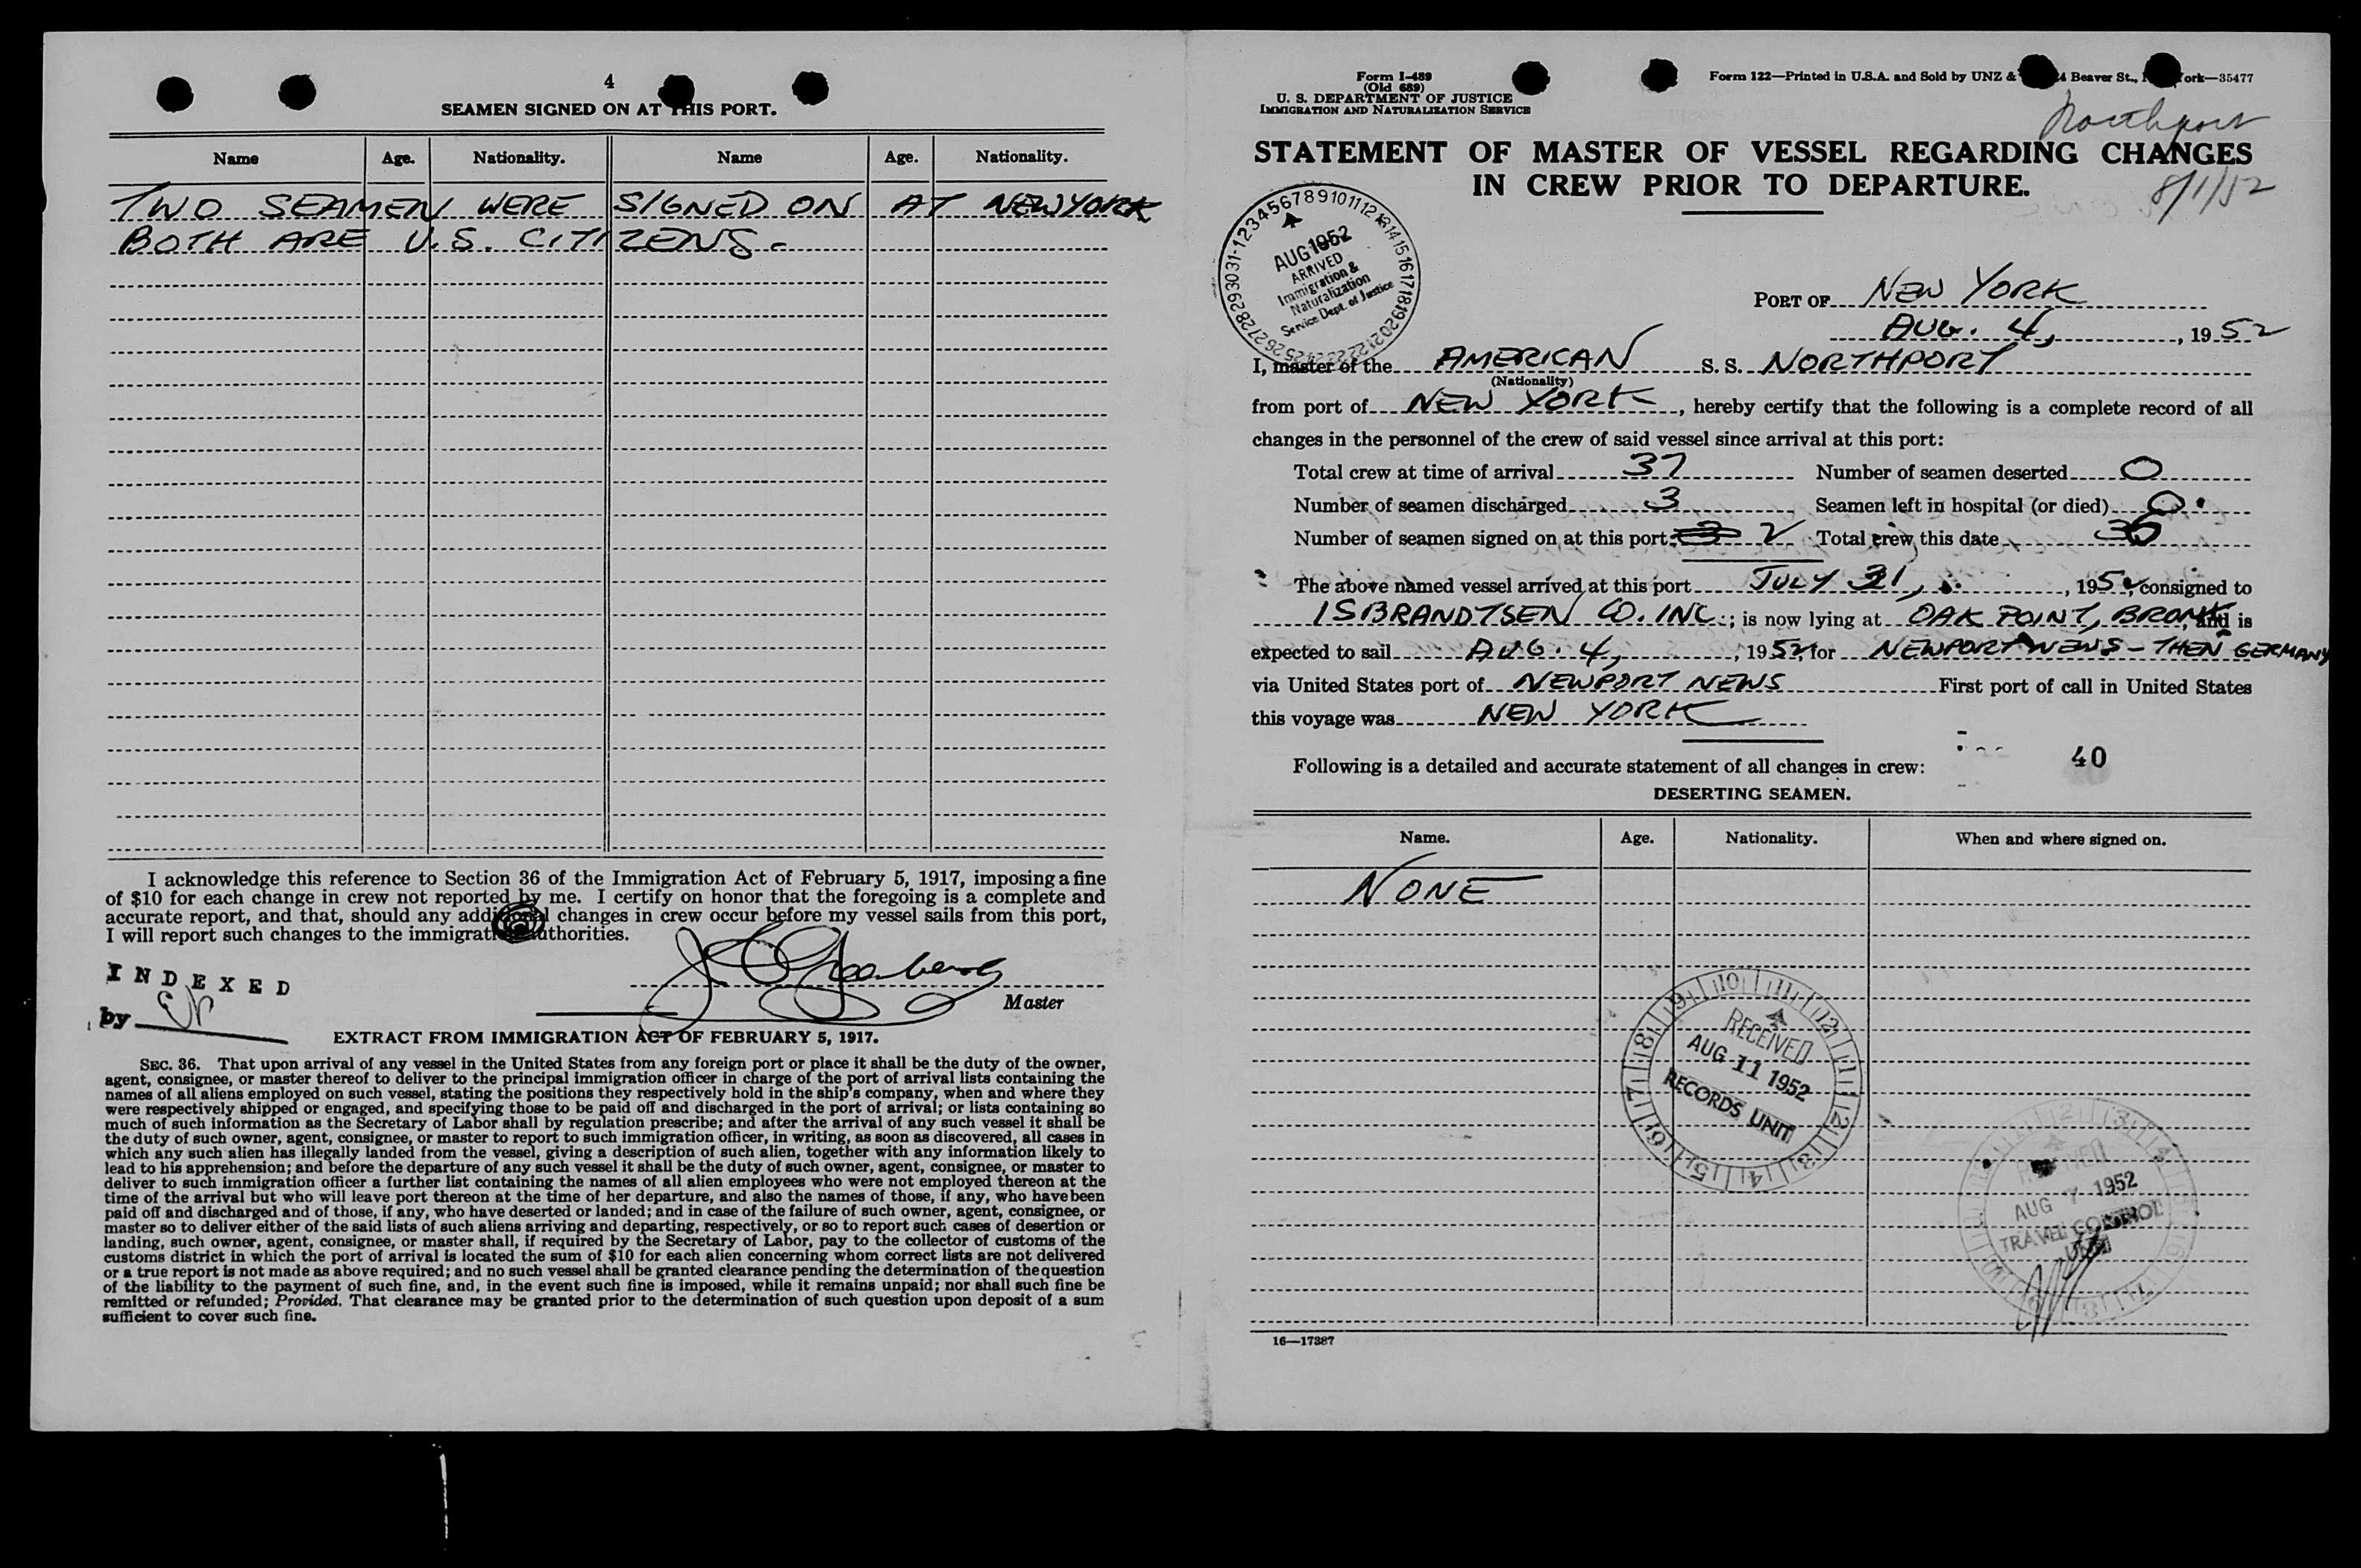 4
SEAMEN SIGNED ON AT THIS PORT.
Name Age. Nationality. Name Age. Nationality.
TWO SEAMEN WERE SIGNED ON AT NEW YORK
BOTH ARE U.S. CITIZENS.
I acknowledge this reference to Section 36 of the Immigration Act of February 5, 1917, imposing a fine
of $10 for each change in crew not reported by me. I certify on honor that the foregoing is a complete and
accurate report, and that, should any additional changes in crew occur before my vessel sails from this port,
I will report such changes to the immigration authorities.
INDEXED
by
Master
EXTRACT FROM IMMIGRATION ACT OF FEBRUARY 5, 1917.
SEC. 36. That upon arrival of any vessel in the United States from any foreign port or place it shall be the duty of the owner,
agent, consignee, or master thereof to deliver to the principal immigration officer in charge of the port of arrival lists containing the
names of all aliens employed on such vessel, stating the positions they respectively hold in the ship's company, when and where they
were respectively shipped or engaged, and specifying those to be paid off and discharged in the port of arrival; or lists containing so
much of such information as the Secretary of Labor shall by regulation prescribe; and after the arrival of any such vessel it shall be
the duty of such owner, agent, consignee, or master to report to such immigration officer, in writing, as soon as discovered, all cases in
which any such alien has illegally landed from the vessel, giving a description of such alien, together with any information likely to
lead to his apprehension; and before the departure of any such vessel it shall be the duty of such owner, agent, consignee, or master to
deliver to such immigration officer a further list containing the names of all alien employees who were not employed thereon at the
time of the arrival but who will leave port thereon at the time of her departure, and also the names of those, if any, who have been
paid off and discharged and of those, if any, who have deserted or landed; and in case of the failure of such owner, agent, consignee, or
master so to deliver either of the said lists of such aliens arriving and departing, respectively, or so to report such cases of desertion or
landing, such owner, agent, consignee, or master shall, if required by the Secretary of Labor, pay to the collector of customs of the
customs district in which the port of arrival is located the sum of $10 for each alien concerning whom correct lists are not delivered
or a true report is not made as above required; and no such vessel shall be granted clearance pending the determination of the question
of the liability to the payment of such fine, and, in the event such fine is imposed, while it remains unpaid; nor shall such fine be
remitted or refunded; Provided, That clearance may be granted prior to the determination of such question upon deposit of a sum
sufficient to cover such fine.
Form I-489
(Old 689)
U. S. DEPARTMENT OF JUSTICE
IMMIGRATION AND NATURALIZATION SERVICE
Form 122—Printed in U.S.A. and Sold by UNZ & Beaver St., York—35477
Northport
8/1/52
STATEMENT OF MASTER OF VESSEL REGARDING CHANGES
IN CREW PRIOR TO DEPARTURE.
AUG 1952
ARRIVED
Immigration &
Naturalization
Service Dept. of Justice
PORT OF NEW YORK
AUG. 4, , 1952
I, master of the AMERICAN S. S. NORTHPORT
(Nationality)
from port of NEW YORK, hereby certify that the following is a complete record of all
changes in the personnel of the crew of said vessel since arrival at this port:
Total crew at time of arrival 37 Number of seamen deserted 0
Number of seamen discharged 3 Seamen left in hospital (or died) 0
Number of seamen signed on at this port 2 Total crew this date 36
The above named vessel arrived at this port JULY 31, , 1952, consigned to
ISBRANDTSEN CO. INC.; is now lying at OAK POINT, BRONX, and is
expected to sail AUG. 4, , 1952, for NEWPORT NEWS - THEN GERMANY
via United States port of NEWPORT NEWS First port of call in United States
this voyage was NEW YORK
40
Following is a detailed and accurate statement of all changes in crew:
DESERTING SEAMEN.
Name. Age. Nationality. When and where signed on.
NONE
RECEIVED
AUG 11 1952
RECORDS UNIT
RECEIVED
AUG 7 1952
TRAVEL CONTROL
UNIT
16—17387